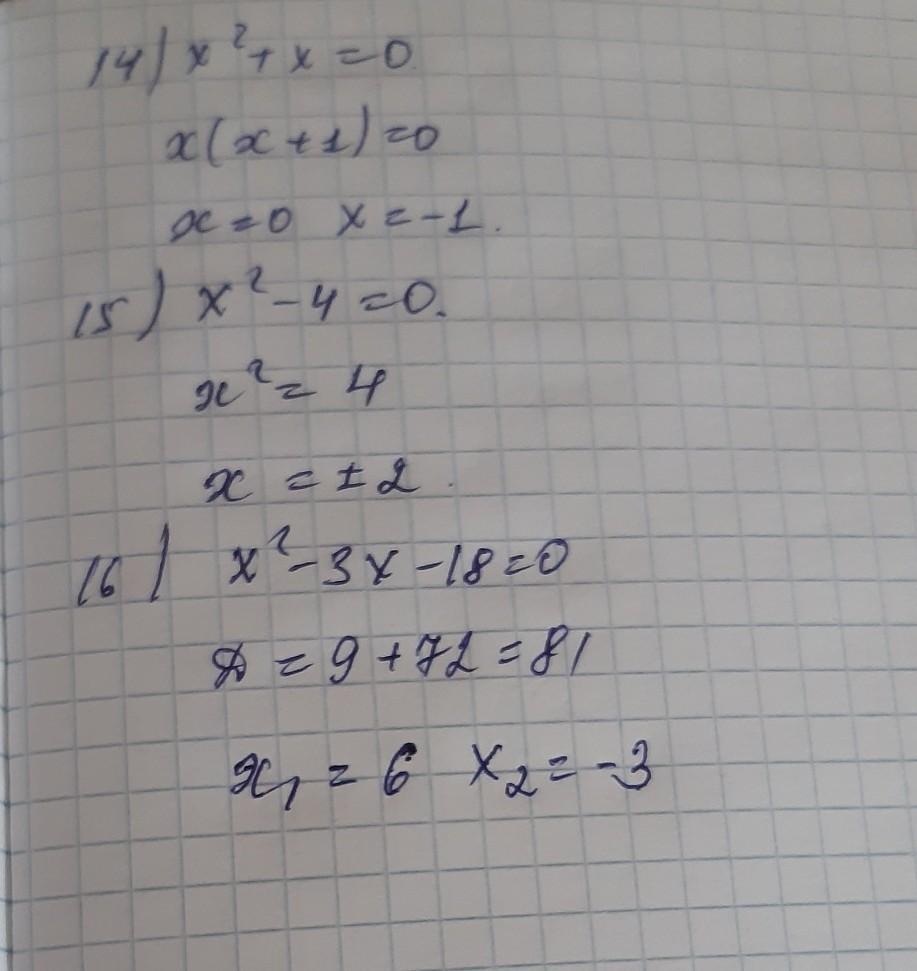 14) x² + x = 0
x(x + 1) = 0
x = 0 x = -1.
15) x² - 4 = 0.
x² = 4
x = ± 2.
16) x² - 3x - 18 = 0
D = 9 + 72 = 81
x₁ = 6 x₂ = -3